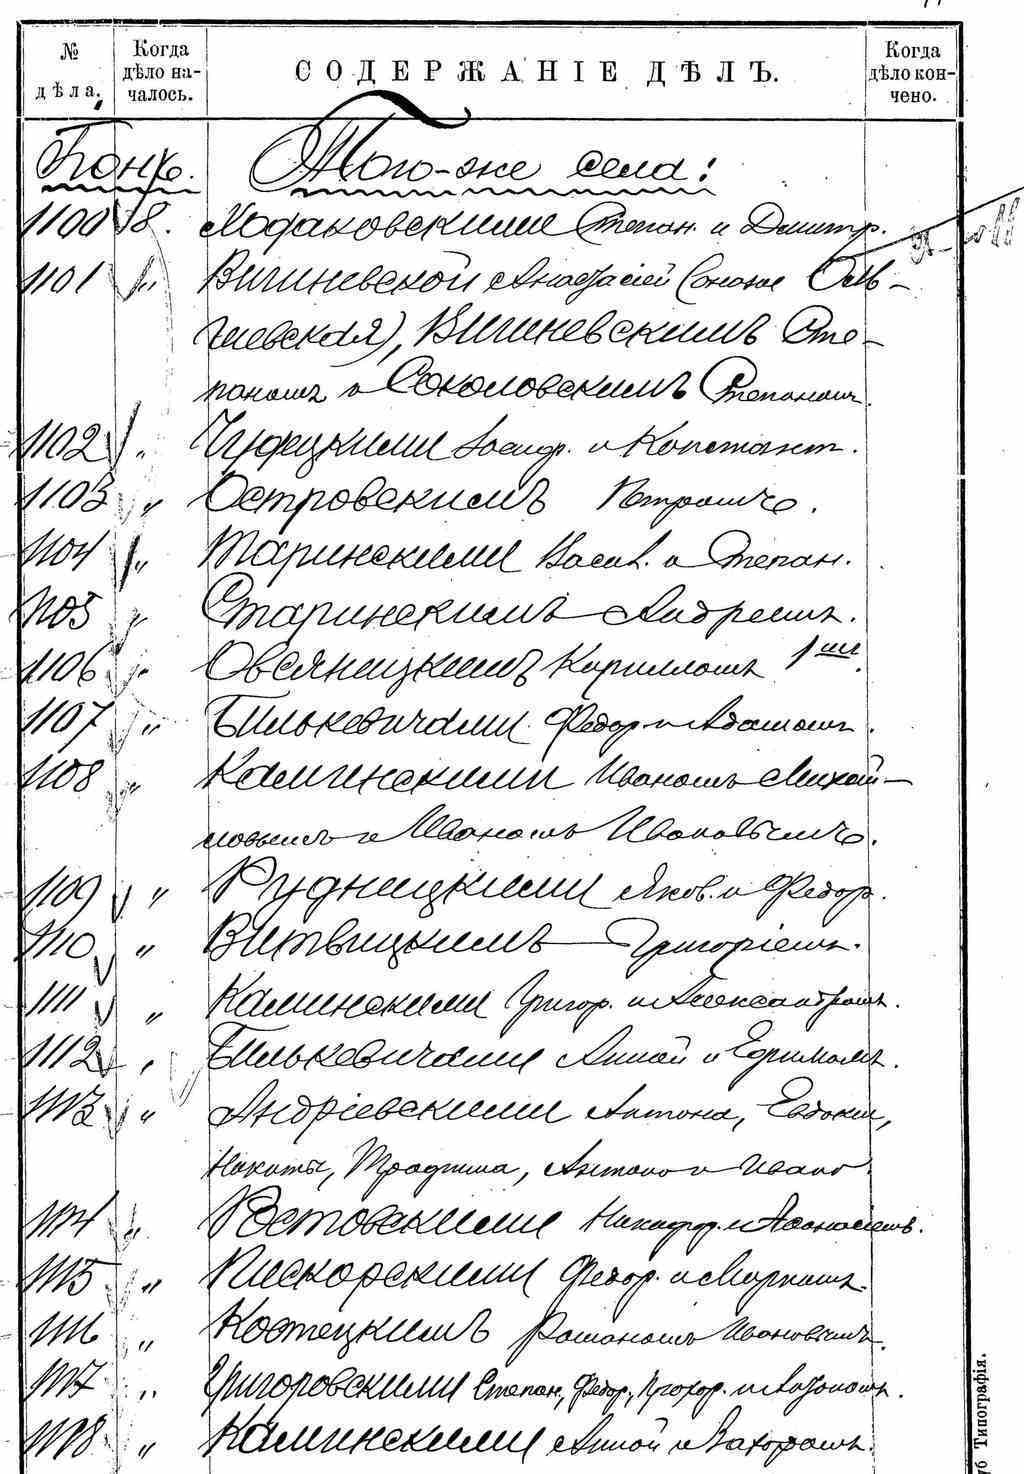 № дѣла.
Когда дѣло на-чалось.
СОДЕРЖАНІЕ ДѢЛЪ.
Когда дѣло кон-чено.
Того-же села:
1100 Ходаковскими Степан. и Дмитр.
1101 " Вишневской Анастасіей
), Вишневскимъ Сте-
паномъ и Соколовскимъ Степаномъ.
1102 " Іосиф. и Констант.
1103 " Островскимъ Петромъ.
1104 " Таринскими Васил. и Степан.
1105 " Старинскимъ Андреемъ.
1106 " Овсяницкимъ Кирилломъ 1мъ.
1107 " Билькевичами Федор. и Адамомъ.
1108 " Каминскими Иваномъ Михай-
ловымъ и Иваномъ Ивановымъ.
1109 " Рудницкими Яков. и Федор.
1110 " Витвицкимъ Григоріемъ.
1111 " Каминскими Григор. и Александромъ.
1112 " Билькевичами Анной и Ефимомъ.
1113 " Андріевскими Антона, Евдоки,
Никиты, Трофима, Антона и Ивана.
1114 " Ростовскими Никифор. и Афанасіемъ.
1115 " Пискорскими Федор. и Маркомъ.
1116 " Костецкимъ Романомъ Ивановымъ.
1117 " Григоровскими Степан., Федор., Прохор. и
1118 " Каминскими Анной и Захаромъ.
Типографія.